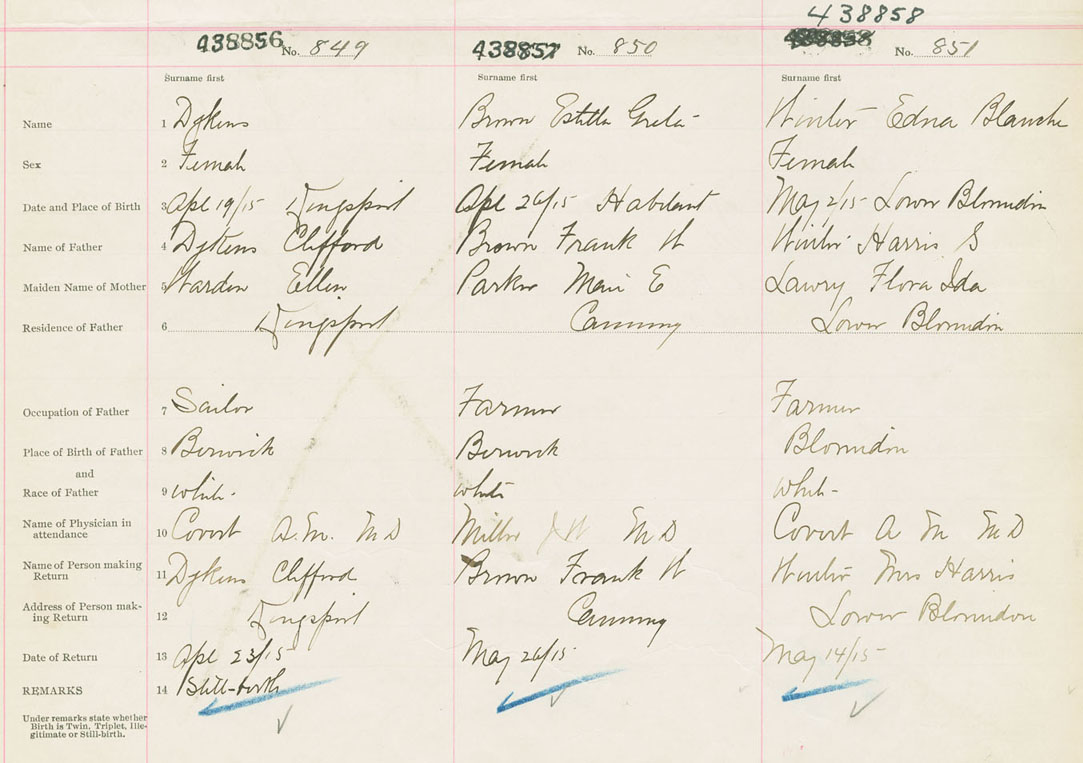 438858
438856 No. 849 438857 No. 850 No. 851
Surname first Surname first Surname first
Name 1 Dykens Brown Estella Greta Winter Edna Blanche
Sex 2 Female Female Female
Date and Place of Birth 3 Apl 19/15 Kingsport Apl 26/15 Habitant May 2/15 Lower Blomidon
Name of Father 4 Dykens Clifford Brown Frank W Winter Harris S
Maiden Name of Mother 5 Warden Ellen Parker E Lawry Flora Ida
Residence of Father 6 Kingsport Canning Lower Blomidon
Occupation of Father 7 Sailor Farmer Farmer
Place of Birth of Father 8 Berwick Berwick Blomidon
and
Race of Father 9 white white white
Name of Physician in
attendance 10 Covert A.M. MD Miller MD Covert A M MD
Name of Person making
Return 11 Dykens Clifford Brown Frank W Winter Mrs Harris
Address of Person mak-
ing Return 12 Kingsport Canning Lower Blomidon
Date of Return 13 Apl 23/15 May 26/15 May 14/15
REMARKS 14 Still-birth
Under remarks state whether
Birth is Twin, Triplet, Ille-
gitimate or Still-birth.